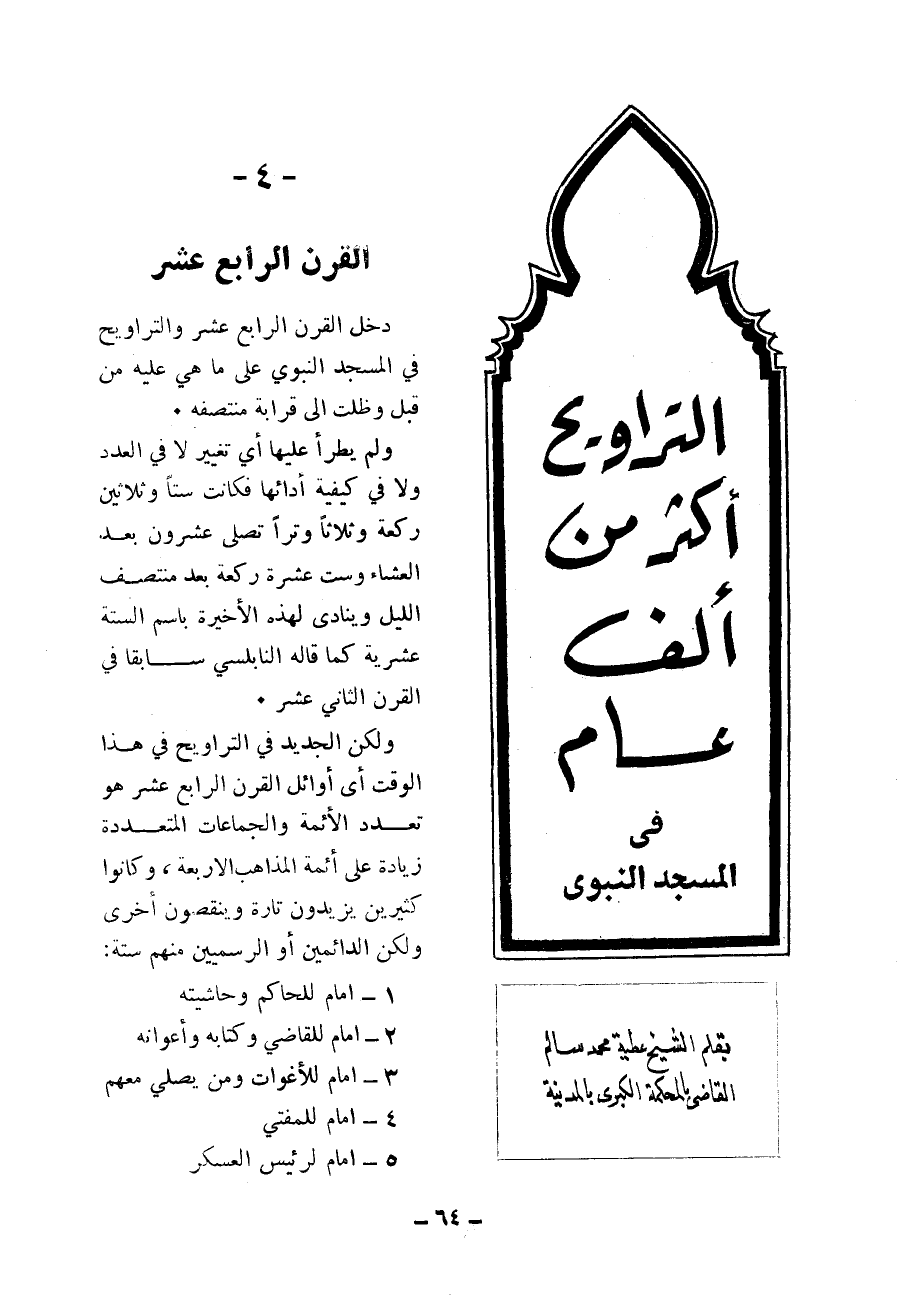 التراويح
أكثر من
ألف
عام
فى
المسجد النبوى
بقلم الشيخ عطية محمد سالم
القاضى بالمحكمة الكبرى بالمدينة
- ٤ -
القرن الرابع عشر
دخل القرن الرابع عشر والتراويح
في المسجد النبوي على ما هي عليه من
قبل وظلت الى قرابة منتصفه ٠
ولم يطرأ عليها أي تغيير لا في العدد
ولا في كيفية أدائها فكانت ستاً وثلاثين
ركعة وثلاثاً وتراً تصلى عشرون بعـد
العشاء وست عشرة ركعة بعد منتصـف
الليل وينادى لهذه الأخيرة باسم الستة
عشرية كما قاله النابلسي ســـابقا في
القرن الثاني عشر ٠
ولكن الجديد في التراويح في هـذا
الوقت أى أوائل القرن الرابع عشر هو
تعـــدد الأئمة والجماعات المتعـــددة
زيادة على أئمة المذاهب الاربعة ، وكانوا
كثيرين يزيدون تارة وينقصون أخرى
ولكن الدائمين أو الرسميين منهم ستة :
١ – امام للحاكم وحاشيته
٢ – امام للقاضي وكتابه وأعوانه
٣ – امام للأغوات ومن يصلي معهم
٤ – امام للمفتي
٥ – امام لرئيس العسكر
– ٦٤ –